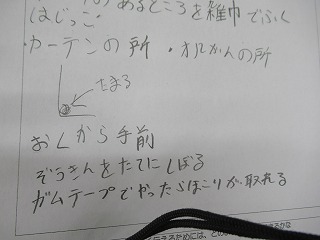 のあるところを雑巾でふく
はじっこ
・カーテンの所 ・オルガンの所
たまる
おくから手前
ぞうきんをたてにしぼる
ガムテープでやったらほこりが取れる